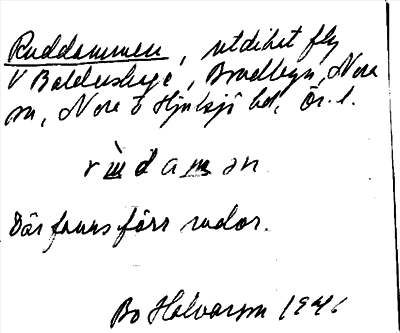 Ruddammen, utdiket fly
V Balderhage, Bredbyn, Nora
sn, Nora o Hjulsjö bd, Ör. l.
r ù d a m ə n
Där fanns förr rudor.
Bo Halvarson 1946